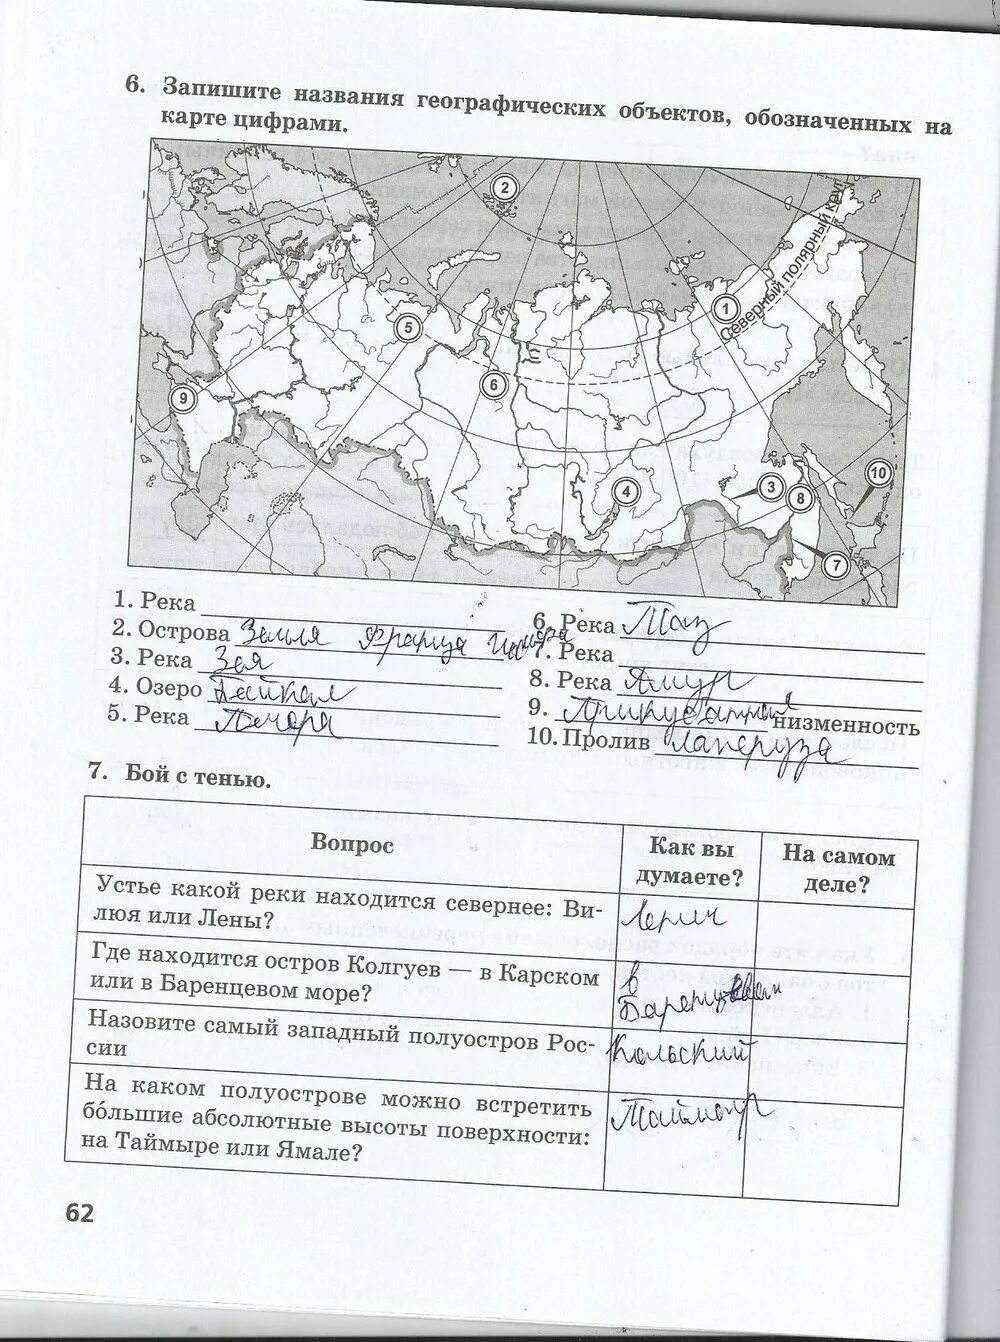 6. Запишите названия географических объектов, обозначенных на
карте цифрами.
2
Северный полярный круг
1
5
6
9
4
3
8
10
7
1. Река
2. Острова Земля Франца Иосифа
3. Река Зея
4. Озеро Байкал
5. Река Печора
6. Река Таз
7. Река
8. Река Амур
9. Прикубанная низменность
10. Пролив Лаперуза
7. Бой с тенью.
Вопрос
Как вы
думаете?
На самом
деле?
Устье какой реки находится севернее: Ви-
люя или Лены?
Где находится остров Колгуев — в Карском
или в Баренцевом море?
в
Баренцевом
Назовите самый западный полуостров Рос-
сии
Кольский
На каком полуострове можно встретить
бо́льшие абсолютные высоты поверхности:
на Таймыре или Ямале?
62